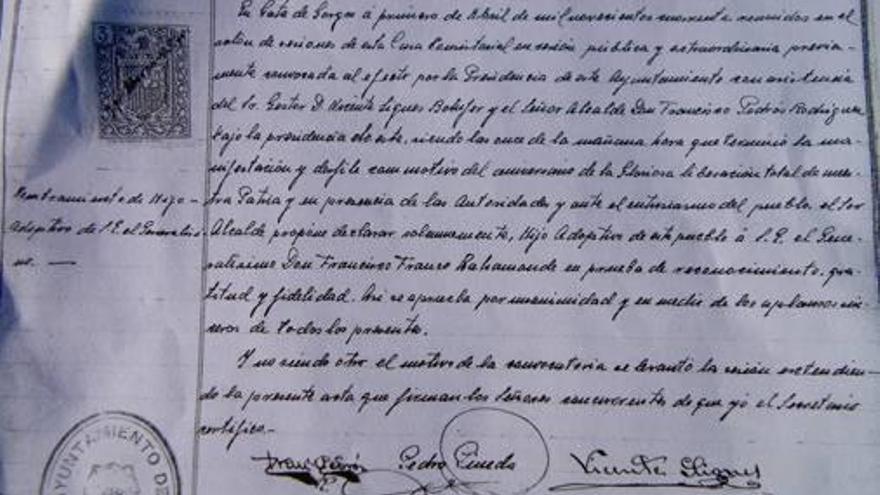 En Gata de Gorgos á primero de Abril de mil novecientos cuarenta reunidos en el
salon de sesiones de esta Casa Consistorial en sesión pública y extraordinaria previa-
mente convocada al efecto por la Presidencia de este Ayuntamiento con asistencia
del Sr. Gestor D. Vicente Signes Bolufer y el Señor Alcalde Don Francisco Pedrós Rodriguez
bajo la presidencia de este, siendo las once de la mañana hora que terminó la ma-
nifestación y desfile con motivo del aniversario de la Gloriosa liberación total de nues-
tra Patria y en presencia de las Autoridades y ante el entusiasmo del pueblo, el Sor
Alcalde propone declarar solemnemente, Hijo Adoptivo de este pueblo á S. E. el Gene-
ralisimo Don Francisco Franco Bahamonde en prueba de reconocimiento, gra-
titud y fidelidad. Asi se aprueba por unanimidad y en medio de los aplausos sin-
ceros de todos los presentes.
Y no siendo otro el motivo de la convocatoria se levantó la sesión extendien-
do la presente acta que firman los Señores concurrentes de que yo el Secretario
certifico.-
Nombramiento de Hijo
Adoptivo de S. E. el Generalísi-
mo. —
3
Pedro Pineda Vicente Signes
AYUNTAMIENTO DE